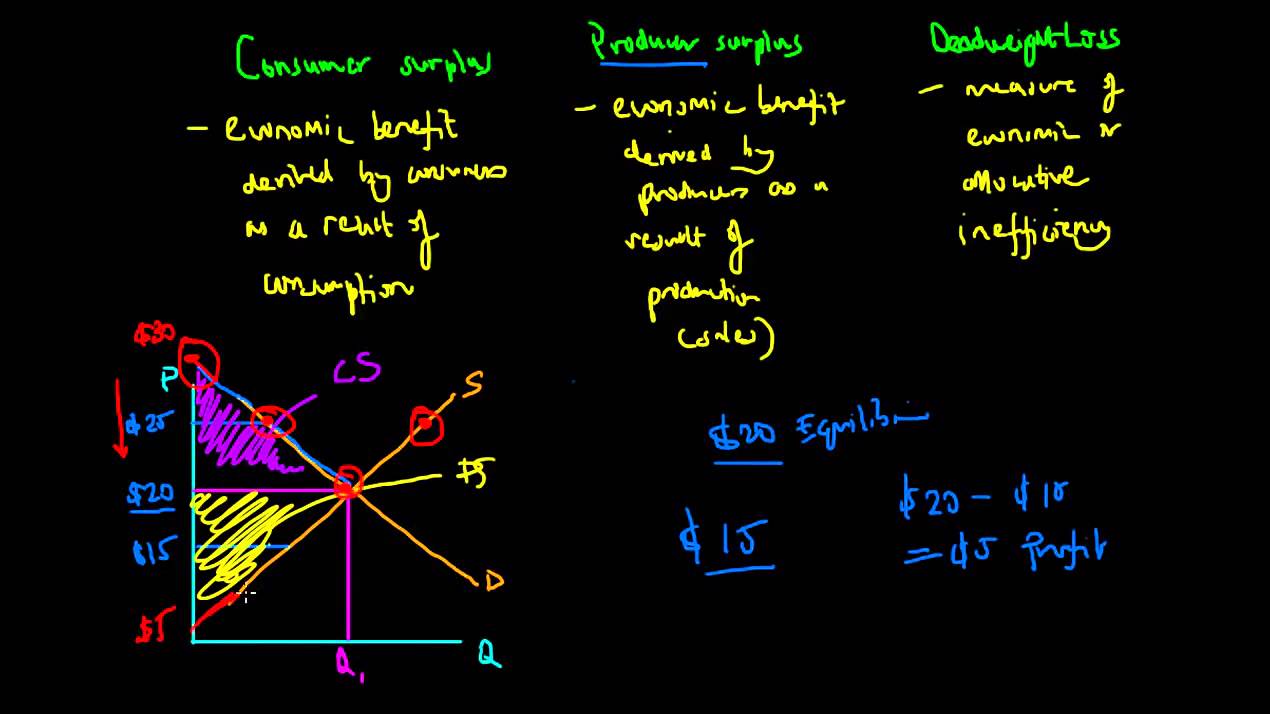 Consumer surplus
- economic benefit
derived by consumers
as a result of
consumption
Producer surplus
- economic benefit
derived by
producers as a
result of
production
(sales)
Deadweight Loss
- measure of
economic or
allocative
inefficiency
$30
P
$25
$20
$15
$5
CS
S
PS
D
Q1
Q
$20 Equilibrium
$15
$20 - $15
= $5 Profit